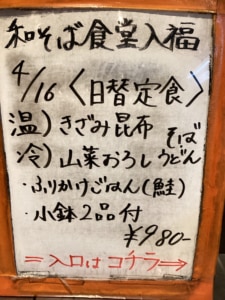 和そば食堂入福
4/16〈日替定食〉
温)きざみ昆布
冷)山菜おろし
そば
うどん
・ふりかけごはん(鮭)
・小鉢2品付
¥980-
=入口はコチラ→